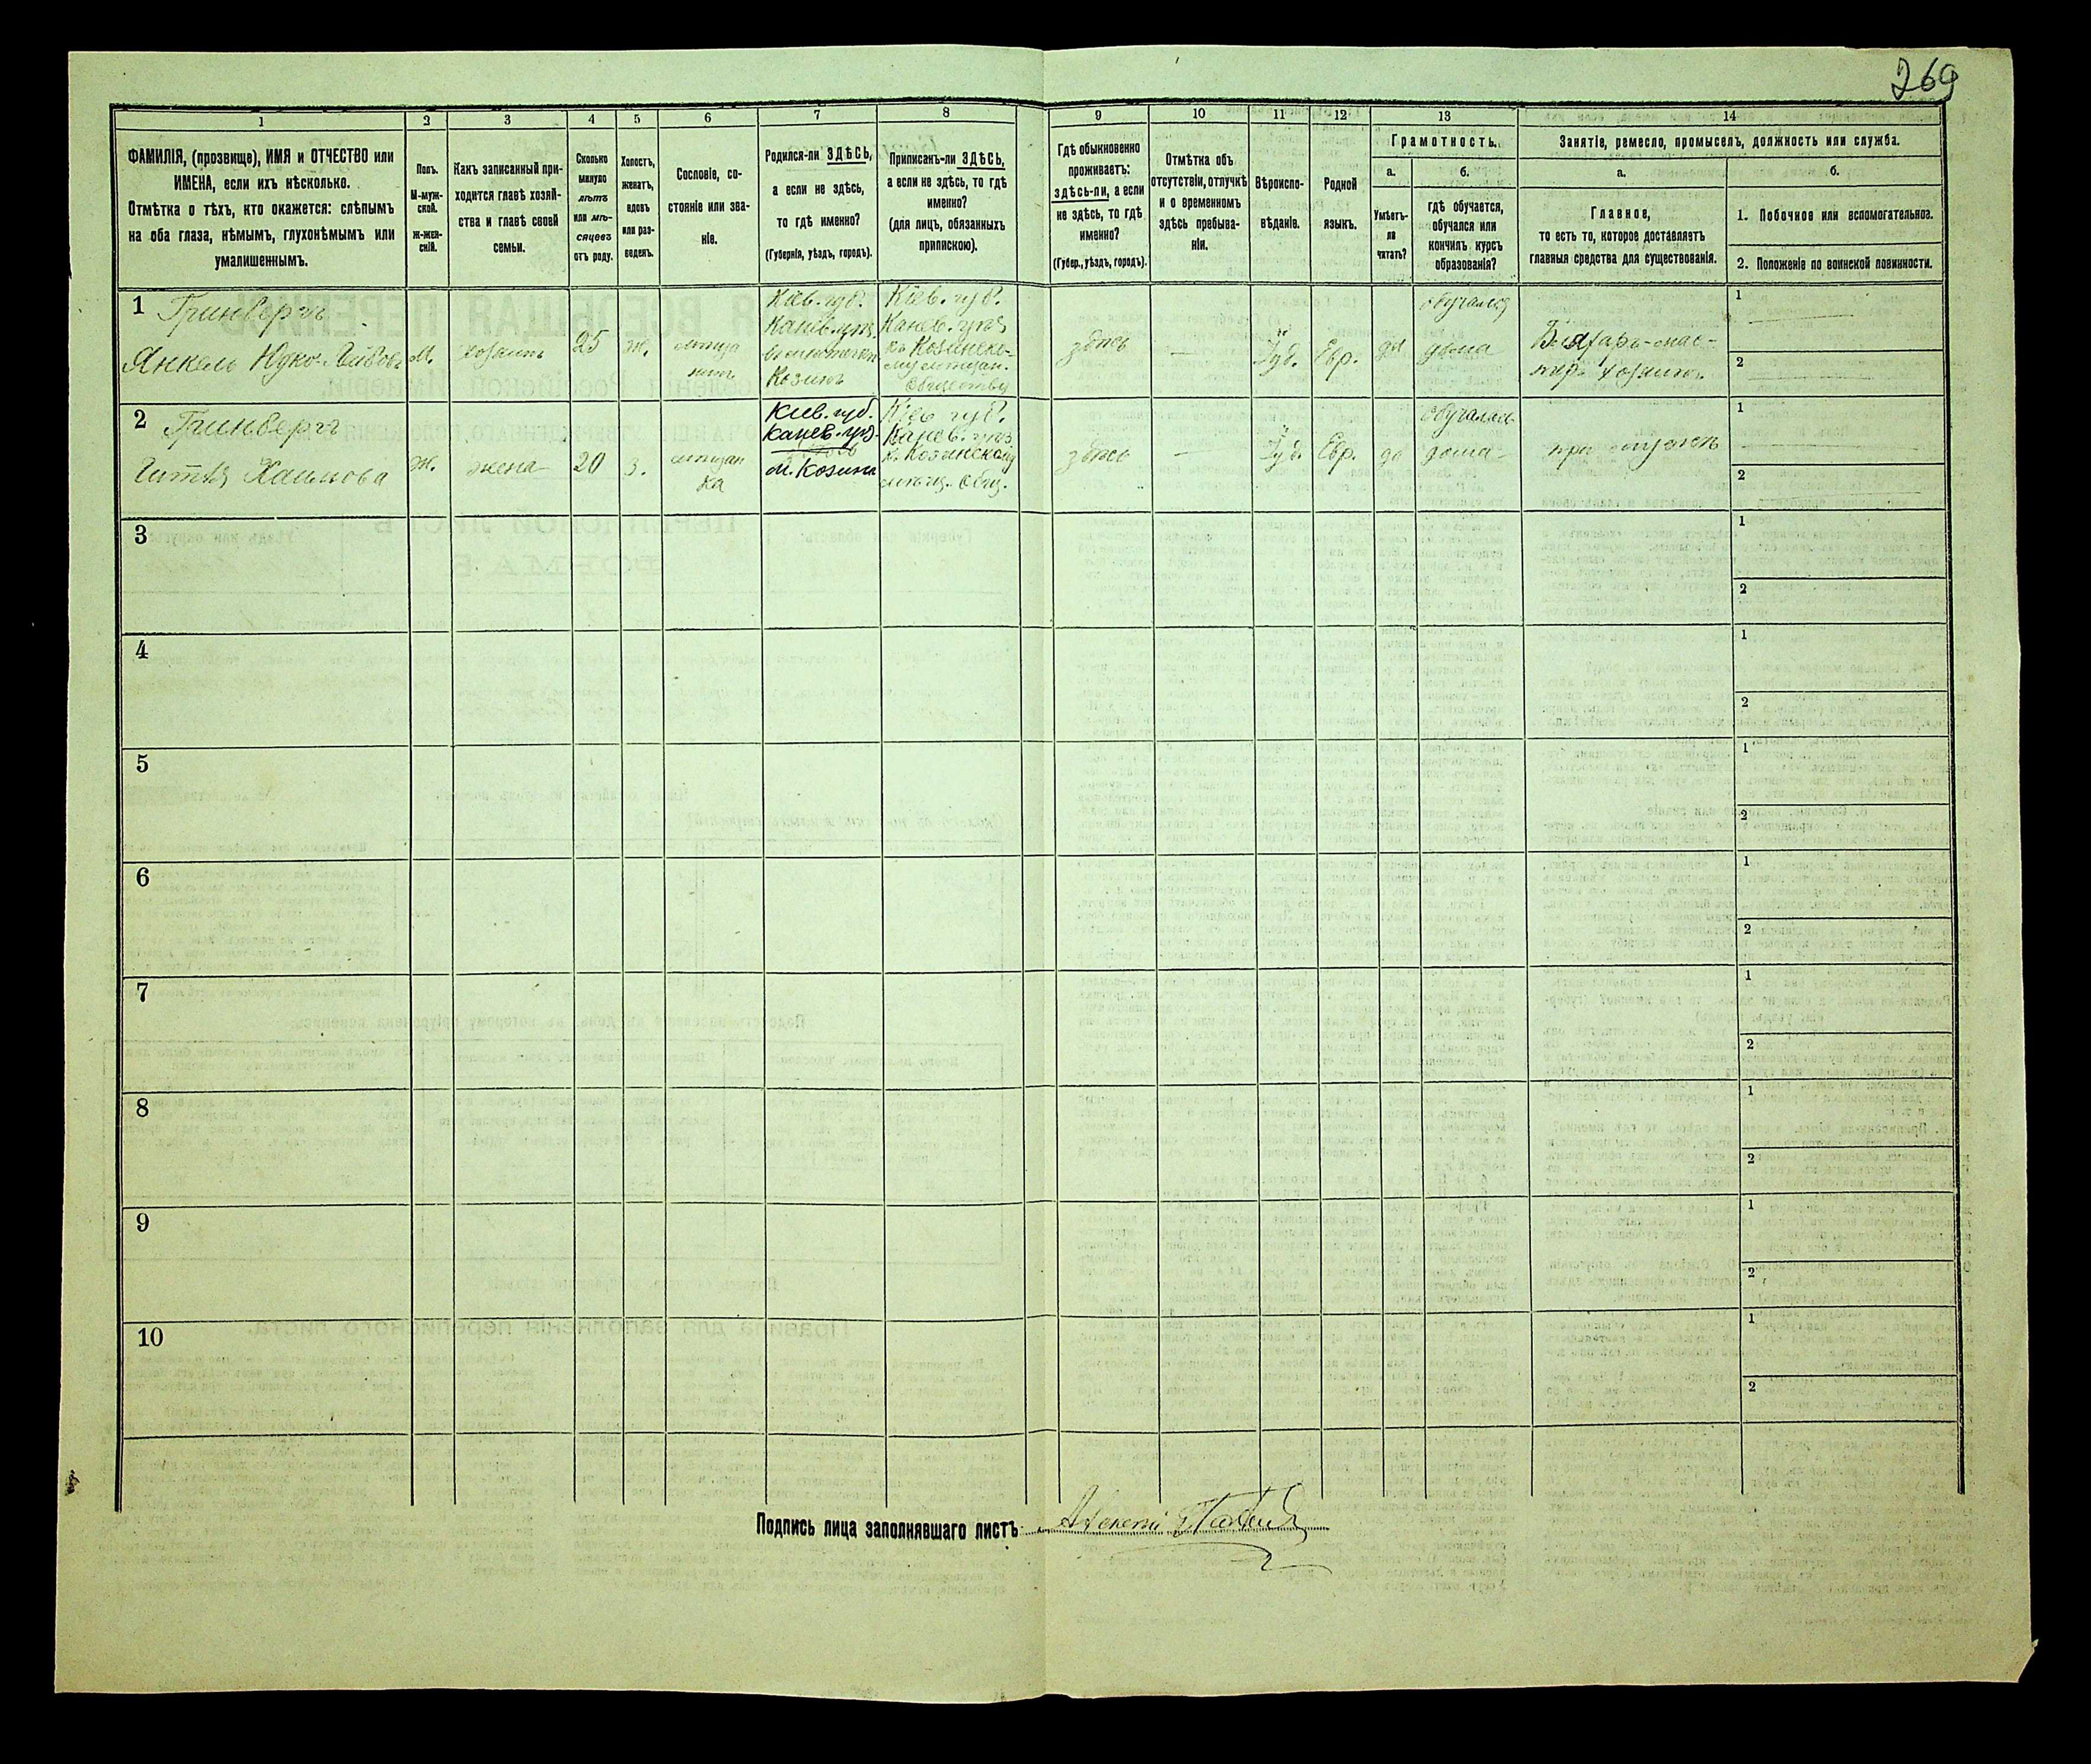 269
1
2
3
4
5
6
7
8
9
10
11
12
13
14
ФАМИЛІЯ, (прозвище), ИМЯ и ОТЧЕСТВО или
ИМЕНА, если ихъ нѣсколько.
Отмѣтка о тѣхъ, кто окажется: слѣпымъ
на оба глаза, нѣмымъ, глухонѣмымъ или
умалишеннымъ.
Полъ.
М-муж-
ской.
Ж-жен-
скій.
Какъ записанный при-
ходится главѣ хозяй-
ства и главѣ своей
семьи.
Сколько
минуло
лѣтъ
или мѣ-
сяцевъ
отъ роду.
Холостъ,
женатъ,
вдовъ
или раз-
веденъ.
Сословіе, со-
стояніе или зва-
ніе.
Родился-ли ЗДѢСЬ,
а если не здѣсь,
то гдѣ именно?
(Губернія, уѣздъ, городъ).
Приписанъ-ли ЗДѢСЬ,
а если не здѣсь, то гдѣ
именно?
(для лицъ, обязанныхъ
припискою).
Гдѣ обыкновенно
проживаетъ:
здѣсь-ли, а если
не здѣсь, то гдѣ
именно?
(Губер., уѣздъ, городъ).
Отмѣтка объ
отсутствіи, отлучкѣ
и о временномъ
здѣсь пребыва-
ніи.
Вѣроиспо-
вѣданіе.
Родной
языкъ.
Грамотность.
а.
Умѣетъ-
ли
читать?
б.
гдѣ обучается,
обучался или
кончилъ курсъ
образованія?
Занятіе, ремесло, промыселъ, должность или служба.
а.
Главное,
то есть то, которое доставляетъ
главныя средства для существованія.
б.
1. Побочное или вспомогательное.
2. Положеніе по воинской повинности.
1
Гринбергъ
Янкель
М.
хозяинъ
25
ж.
мѣща
нинъ
Кіев. губ.
Канев. уѣз.
Козинѣ
Кіев. губ.
Канев. уѣз.
къ Козинско-
му мѣщан.
Обществу
здѣсь
—
Іуд.
Евр.
да
обучался
дома
хозяинъ
1
2
2
Гринбергъ
Хаимова
Ж.
жена
20
з.
мѣщан
ка
Кіев. губ.
Канев. уѣз.
м. Козинѣ
Кіев. губ.
Канев. уѣз.
к. Козинскому
мѣщ. Общ.
здѣсь
—
Іуд.
Евр.
да
обучалась
дома
при мужѣ
1
2
3
1
2
4
1
2
5
1
2
6
1
2
7
1
2
8
1
2
9
1
2
10
1
2
Подпись лица заполнявшаго листъ